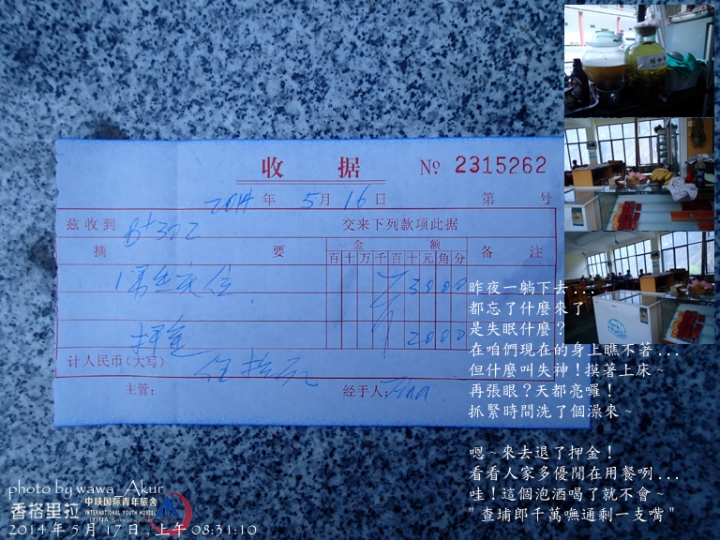 收 据 № 2315262
2014 年 5 月 16 日 第 号
兹收到 B+302 交来下列款项此据
摘 要 金 额 备 注
百十万千百十元角分
1男生床位 ¥ 3000
押金 2000
计人民币(大写) 伍拾元
主管: 经手人:
昨夜一躺下去...
都忘了什麼來了
是失眠什麼?
在咱們現在的身上瞧不著...
但什麼叫失神!摸著上床~
再張眼?天都亮囉!
抓緊時間洗了個澡來~
嗯~來去退了押金!
看看人家多優閒在用餐咧...
哇!這個泡酒喝了就不會~
"查埔郎千萬嘸通剩一支嘴"
photo by wawa_Akur
香格里拉
中峡国际青年旅舍
INTERNATIONAL YOUTH HOSTEL
2014年5月17日,上午08:31:10